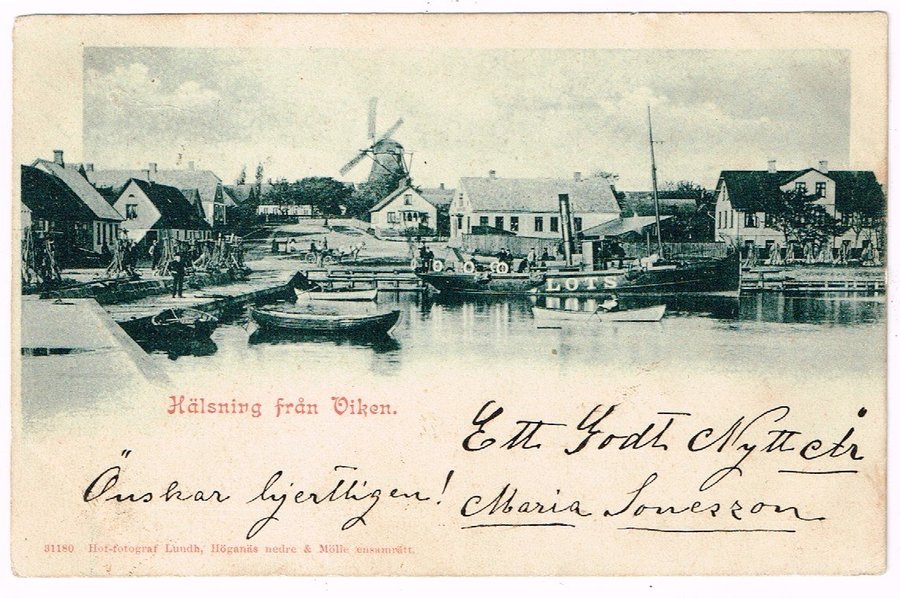 LOTS
Hälsning från Viken.
Ett Godt Nytt År
Önskar hjertligen! Maria Sonesson
31180 Hof-fotograf Lundh, Höganäs nedre & Mölle ensamrätt.